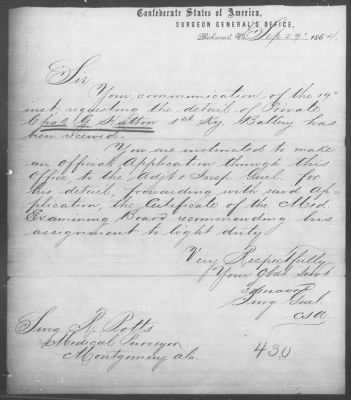 Confederate States of America,
SURGEON GENERAL'S OFFICE,
Richmond, Va. Sep 29th 1864.
Sir
Your communication of the 19th
inst, requesting the detail of Private
Chas G. Hutton 1st Ky. Battery has
been received.
You are instructed to make
an official Application through this
Office to the Adjt & Insp Genl. for
his detail, forwarding with said Ap-
plication, the Certificate of the Med.
Examining Board recommending his
assignment to light duty
Very Respectfully
Your Obdt Servt
S. P. Moore
Surg Genl
CSA
Surg R. Potts
Medical Purveyor
Montgomery Ala.
430